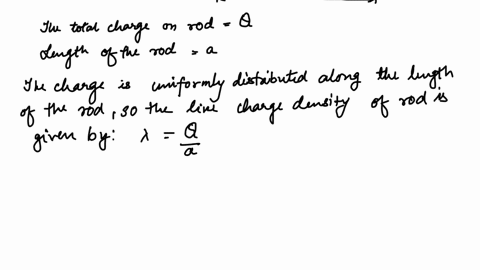 The total charge on rod = Q
Length of the rod = a
The charge is uniformly distributed along the length
of the rod, so the line charge density of rod is
given by: λ = Q/a